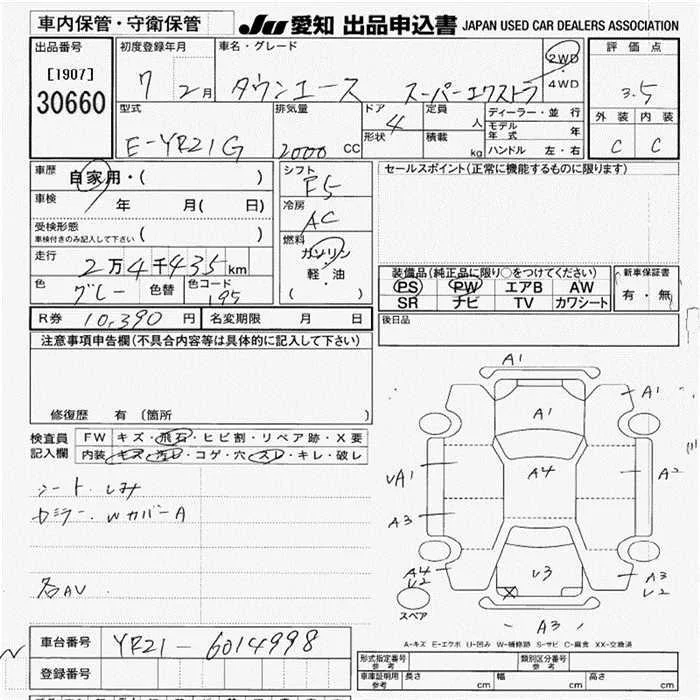 車内保管・守衛保管 JU 愛知 出品申込書 JAPAN USED CAR DEALERS ASSOCIATION
出品番号 初度登録年月 車名・グレード 2WD・4WD 評価点
[1907] 7 2月 タウンエース スーパーエクストラ 3.5
30660 型式 排気量 ドア 4 定員 人 ディーラー・並行 外装 内装
E-YR21G 2000 CC 形状 積載 kg モデル年式 年 C C
ハンドル 左・右
車歴 自家用・( ) シフト F5 セールスポイント(正常に機能するものに限ります)
車検 年 月( 日) 冷房 AC
受検形態 ( )
車検付きのみ記入して下さい
燃料 ガソリン・軽・油 ( )
走行 2万4千435km 装備品(純正品に限り○をつけてください) 新車保証書
色 グレー 色替 色コード 195 PS PW エアB AW 有・無
SR ナビ TV カワシート
R券 10,390円 名変期限 月 日 後日品
注意事項申告欄(不具合内容等は具体的に記入して下さい)
修復歴 有(箇所 )
検査員記入欄 FW キズ・飛石・ヒビ割・リペア跡・X要
内装 キズ・汚レ・コゲ・穴・スレ・キレ・破レ
A1
A1
A1
A4
UA1
A2
A3
U3
A4
U2
A3
U2
A3
スペア
シート.シミ
WカバーA
各AV
A-キズ E-エクボ U-凹み W-補修跡 S-サビ C-腐食 XX-交換済
車台番号 YR21-6014998
形式指定番号 参考 類別区分番号 参考
登録番号 車庫証明用 参考 長さ cm 幅 cm 高さ cm